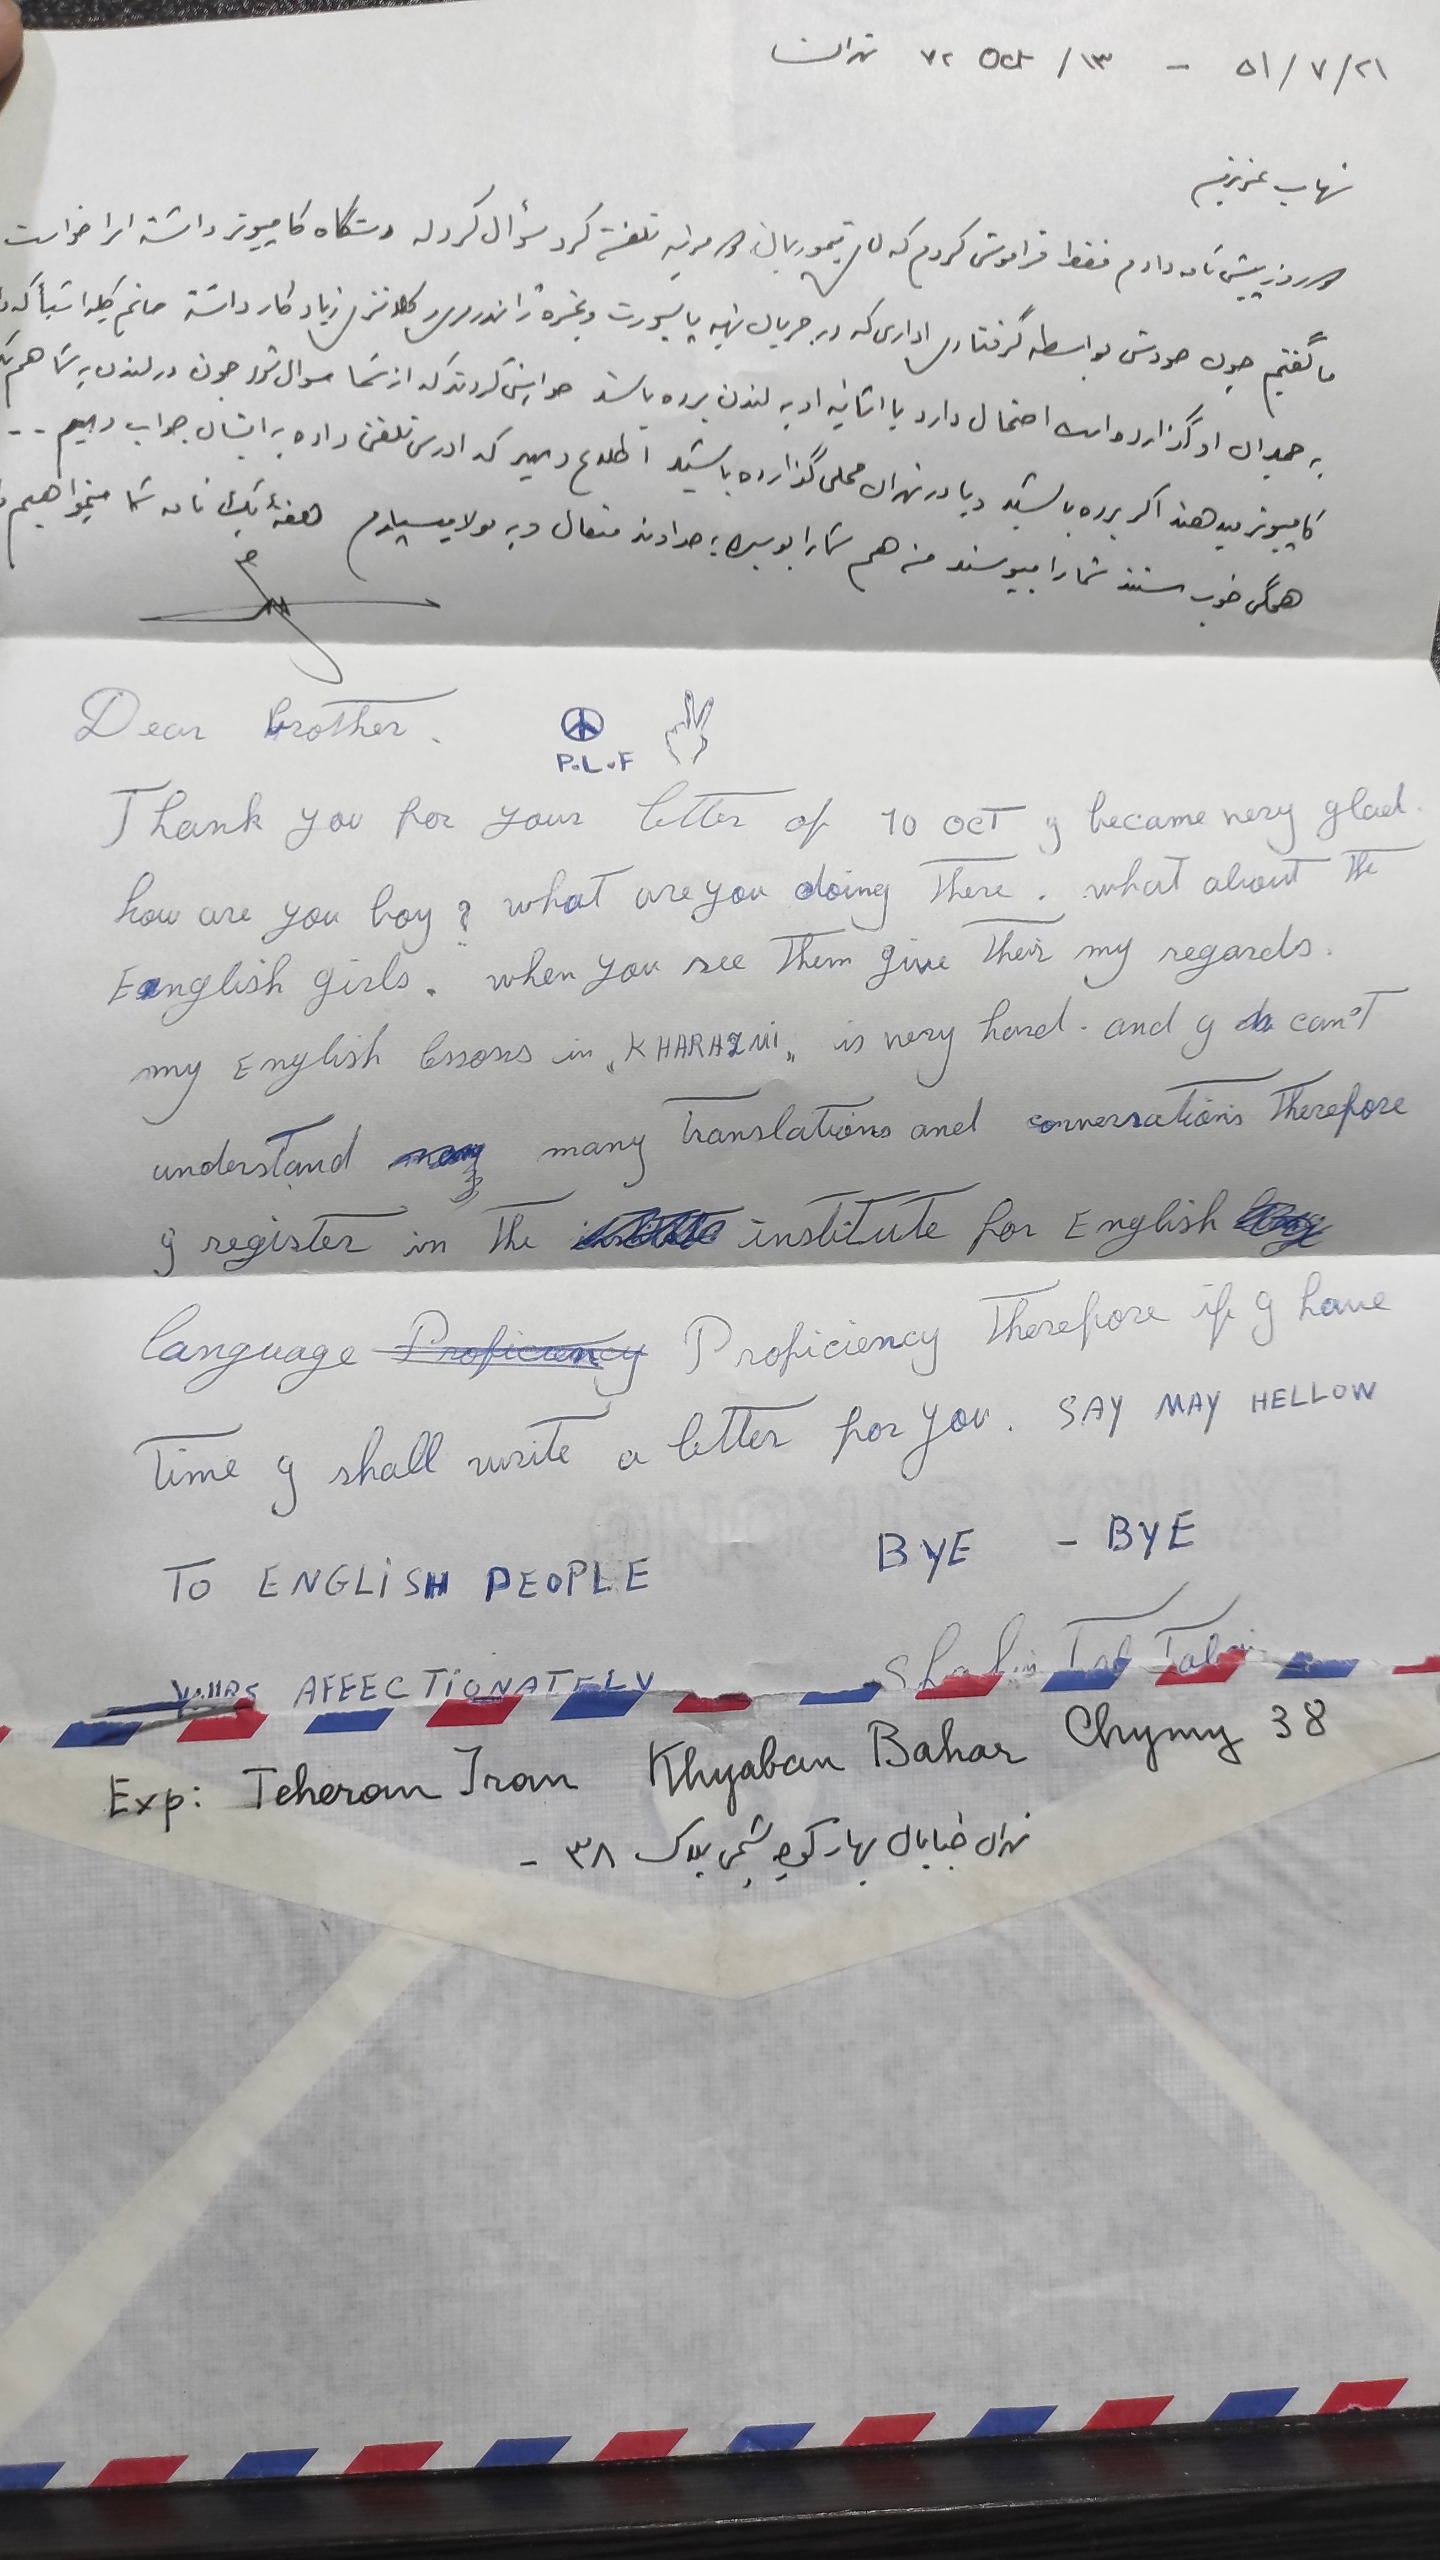 ۵۱/۷/۲۱ - ۱۳/ Oct ۷۲ تهران
شهاب عزیزم
روز پیش نامه دادم فقط فراموش کردم که تیمور تلفن کرد سؤال کرد که دستگاه کامپیوتر داشته
ما گفتیم چون خودش بواسطه گرفتاری اداری که در جریان تهیه پاسپورت و غیره زیاد کار داشته خانم
به چمدان او گذارده است احتمال دارد با اثاثیه او به لندن برده باشد خواهش کردند که از شما سوال شود چون در لندن به شما هم
کامپیوتر میدهند اگر برده باشید و یا در تهران محلی گذارده باشید اطلاع دهید که ادرس تلفن داده به ایشان جواب دهیم --
همگی خوب هستند شما را میبوسند من هم شما را بوسیده به خداوند متعال و به مولا میسپارم هفتهٔ یک نامه شما میخواهیم
Dear brother.
P.L.F
Thank you for your letter of 10 OCT I became very glad.
how are you boy? what are you doing There. what about The
English girls. when you see Them give Their my regards.
my English lessons in "KHARAZMI" is very hard. and I can't
understand many Translations and conversations Therefore
I register in The institute for English
language Proficiency Proficiency Therefore if I have
Time I shall write a letter for you. SAY MAY HELLOW
TO ENGLISH PEOPLE BYE - BYE
YOURS AFFECTIONATELY Shahin TabTabai
Exp: Teheran Iran Khyaban Bahar Chymy 38
تهران خیابان بهار کوچه شیمی پلاک ۳۸ -